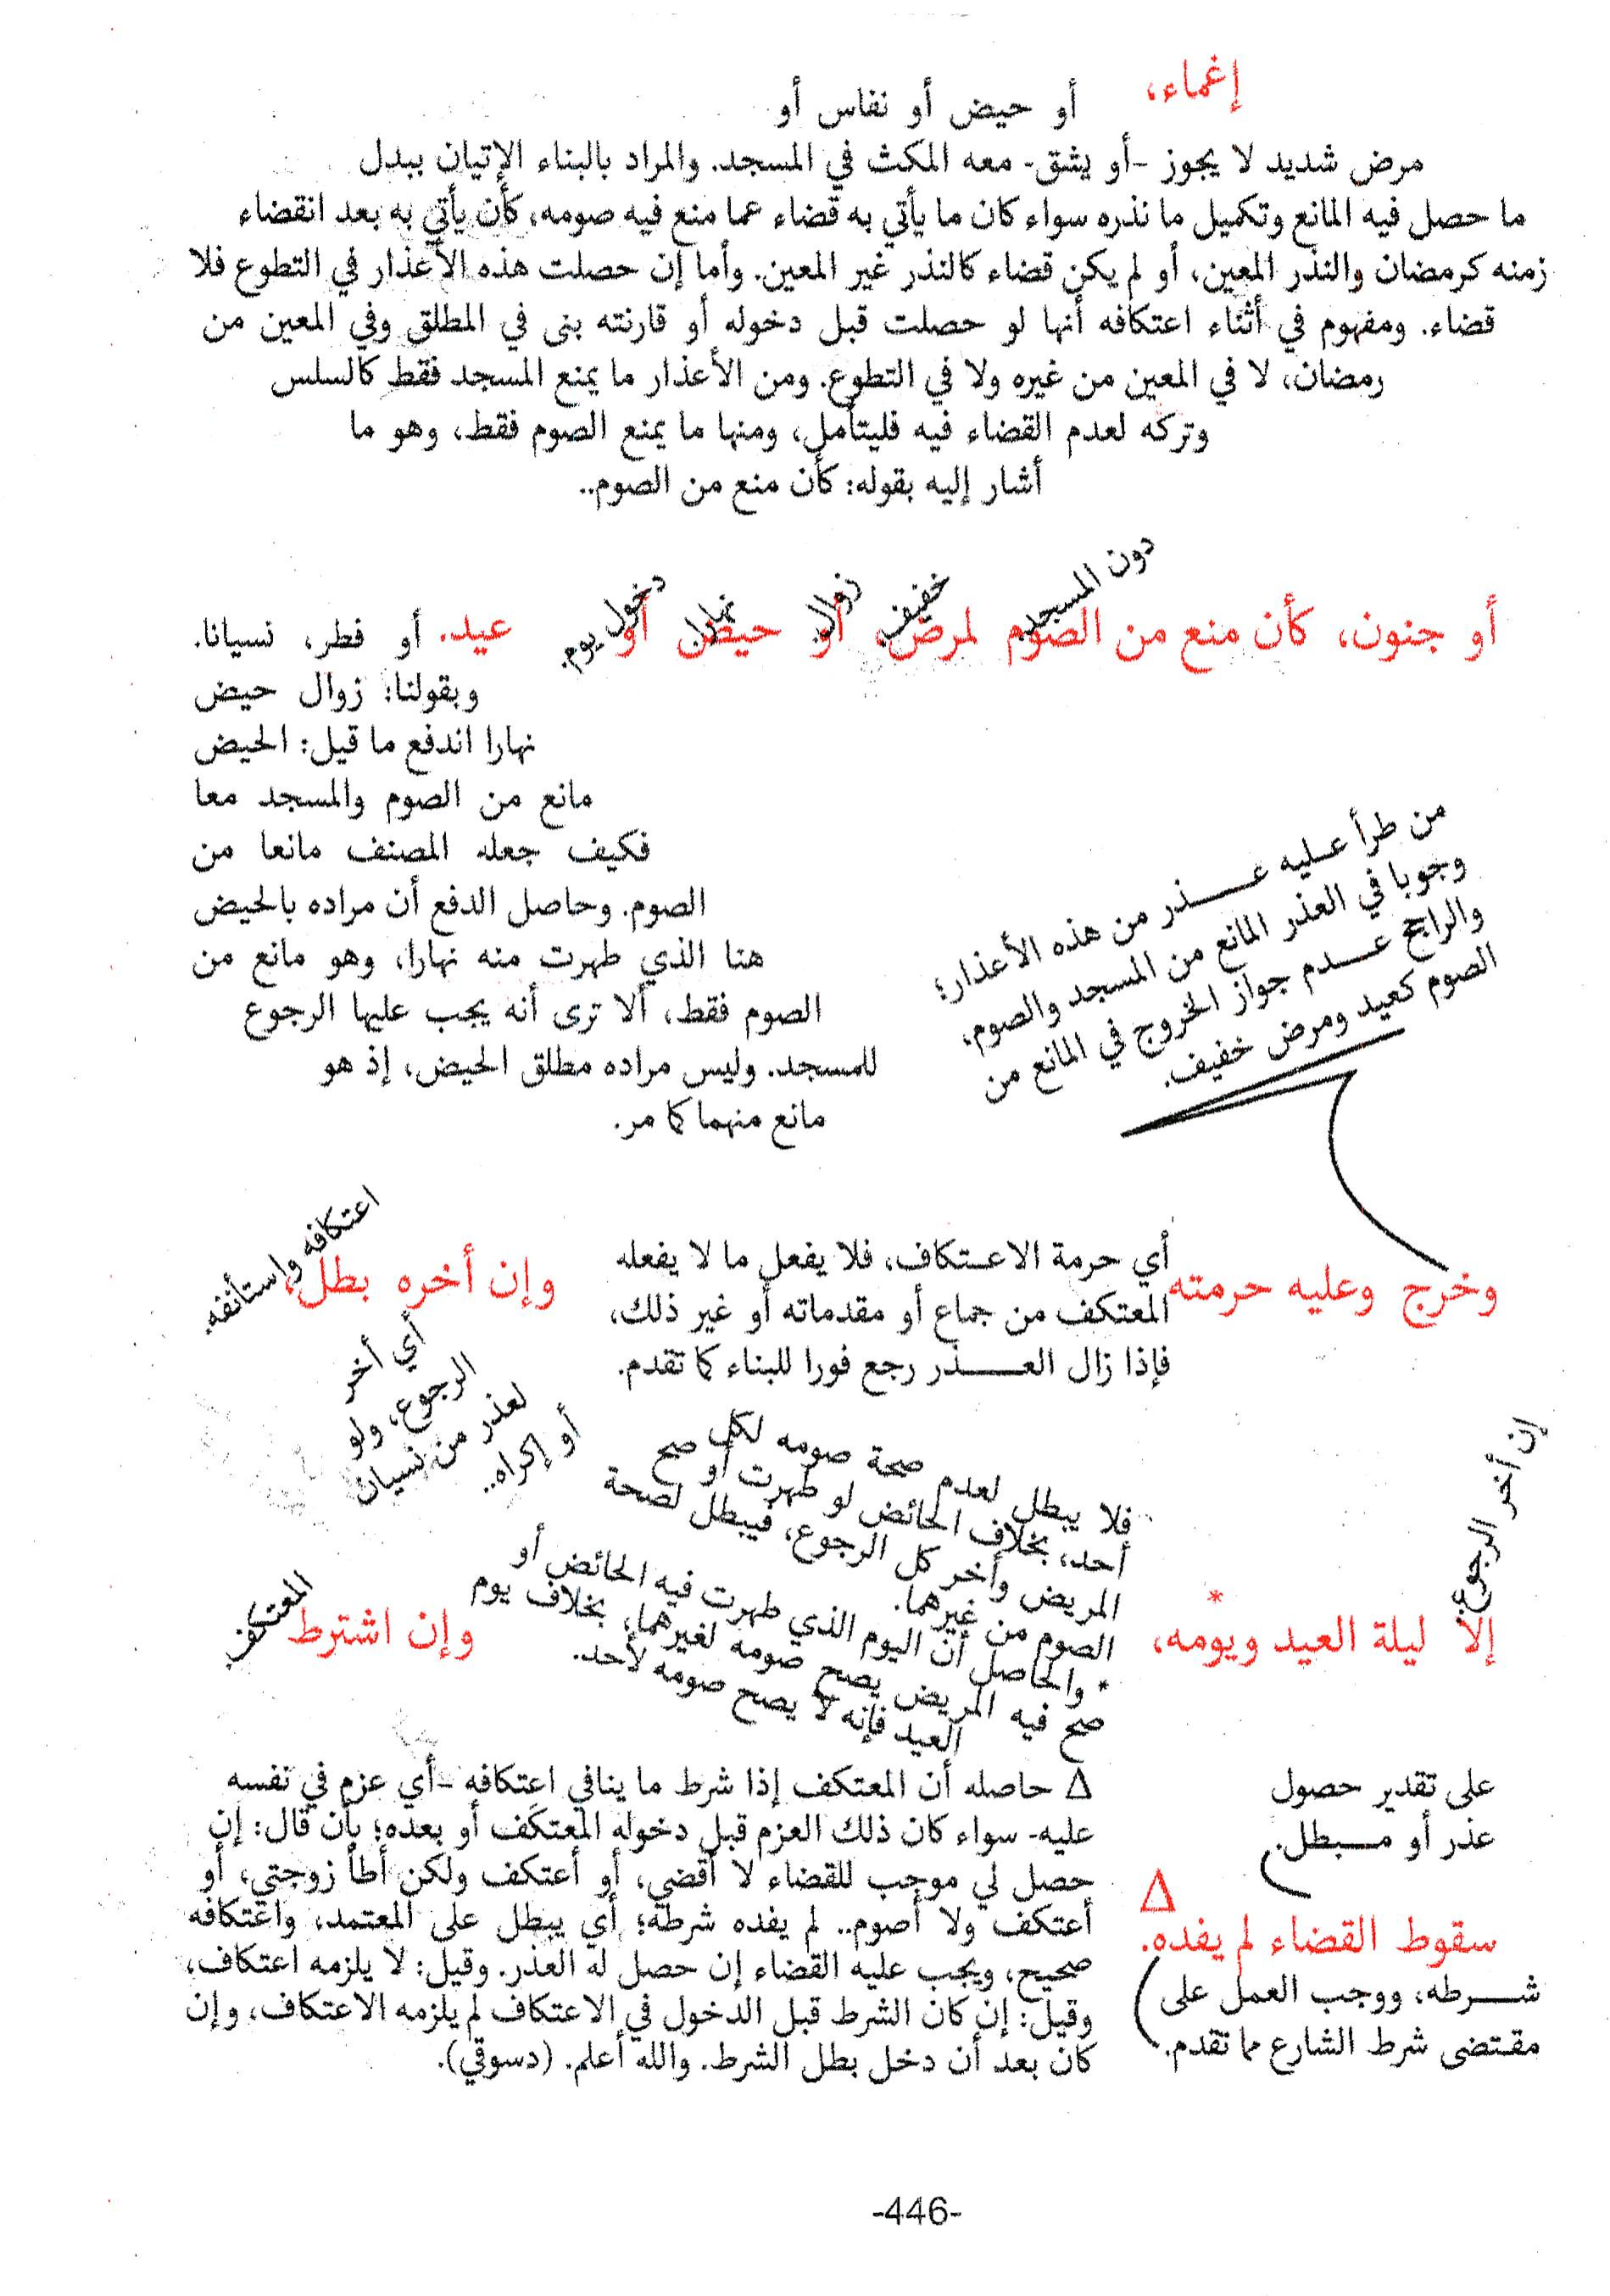 إغماء،
أو حيض أو نفاس أو
مرض شديد لا يجوز -أو يشق- معه المكث في المسجد. والمراد بالبناء الإتيان ببدل
ما حصل فيه المانع وتكميل ما نذره سواء كان ما يأتي به قضاء عما منع فيه صومه، كأن يأتي به بعد انقضاء
زمنه كرمضان والنذر المعين، أو لم يكن قضاء كالنذر غير المعين. وأما إن حصلت هذه الأعذار في التطوع فلا
قضاء. ومفهوم في أثناء اعتكافه أنها لو حصلت قبل دخوله أو قارنته بنى في المطلق وفي المعين من
رمضان، لا في المعين من غيره ولا في التطوع. ومن الأعذار ما يمنع المسجد فقط كالسلس
وتركه لعدم القضاء فيه فليتأمل، ومنها ما يمنع الصوم فقط، وهو ما
أشار إليه بقوله: كأن منع من الصوم..
أو جنون، كأن منع من الصوم لمرض، أو حيض أو عيد. أو فطر، نسيانا.
دون المسجد
خفيف
زوال
نهارا
دخول يوم
وبقولنا: زوال حيض
نهارا اندفع ما قيل: الحيض
مانع من الصوم والمسجد معا
فكيف جعله المصنف مانعا من
الصوم. وحاصل الدفع أن مراده بالحيض
هنا الذي طهرت منه نهارا، وهو مانع من
الصوم فقط، ألا ترى أنه يجب عليها الرجوع
للمسجد. وليس مراده مطلق الحيض، إذ هو
مانع منهما كما مر.
من طرأ عليه عـذر من هذه الأعذار؛
وجوبا في العذر المانع من المسجد والصوم.
والراجح عـدم جواز الخروج في المانع من
الصوم كعيد ومرض خفيف.
وخرج وعليه حرمته
أي حرمة الاعـتكاف، فلا يفعل ما لا يفعله
المعتكف من جماع أو مقدماته أو غير ذلك،
فإذا زال العـذر رجع فورا للبناء كما تقدم.
وإن أخره بطل،
اعتكافه واستأنفه.
أي أخر
الرجوع، ولو
لعذر من نسيان
أو إكراه..
إن أخر الرجوع.
إلا ليلة العيد ويومه، *
فلا يبطل لعدم صحة صومه لكل
أحد، بخلاف الحائض لو طهرت أو صح
المريض وأخر كل الرجوع، فيبطل لصحة
الصوم من غيرهما.
* والحاصل أن اليوم الذي طهرت فيه الحائض أو
صح فيه المريض يصح صومه لغيرهما، بخلاف يوم
العيد فإنه لا يصح صومه لأحد.
وإن اشترط
المعتكف
على تقدير حصول
عذر أو مـبطل.
سقوط القضاء لم يفده. Δ
شـرطه، ووجب العمل على
مقـتضى شرط الشارع مما تقدم.
Δ حاصله أن المعتكف إذا شرط ما ينافي اعتكافه -أي عزم في نفسه
عليه- سواء كان ذلك العزم قبل دخوله المعتكَف أو بعده؛ بأن قال: إن
حصل لي موجب للقضاء لا أقضي، أو أعتكف ولكن أطأ زوجتي، أو
أعتكف ولا أصوم.. لم يفده شرطه؛ أي يبطل على المعتمد، واعتكافه
صحيح، ويجب عليه القضاء إن حصل له العذر. وقيل: لا يلزمه اعتكاف،
وقيل: إن كان الشرط قبل الدخول في الاعتكاف لم يلزمه الاعتكاف، وإن
كان بعد أن دخل بطل الشرط. والله أعلم. (دسوقي).
-446-